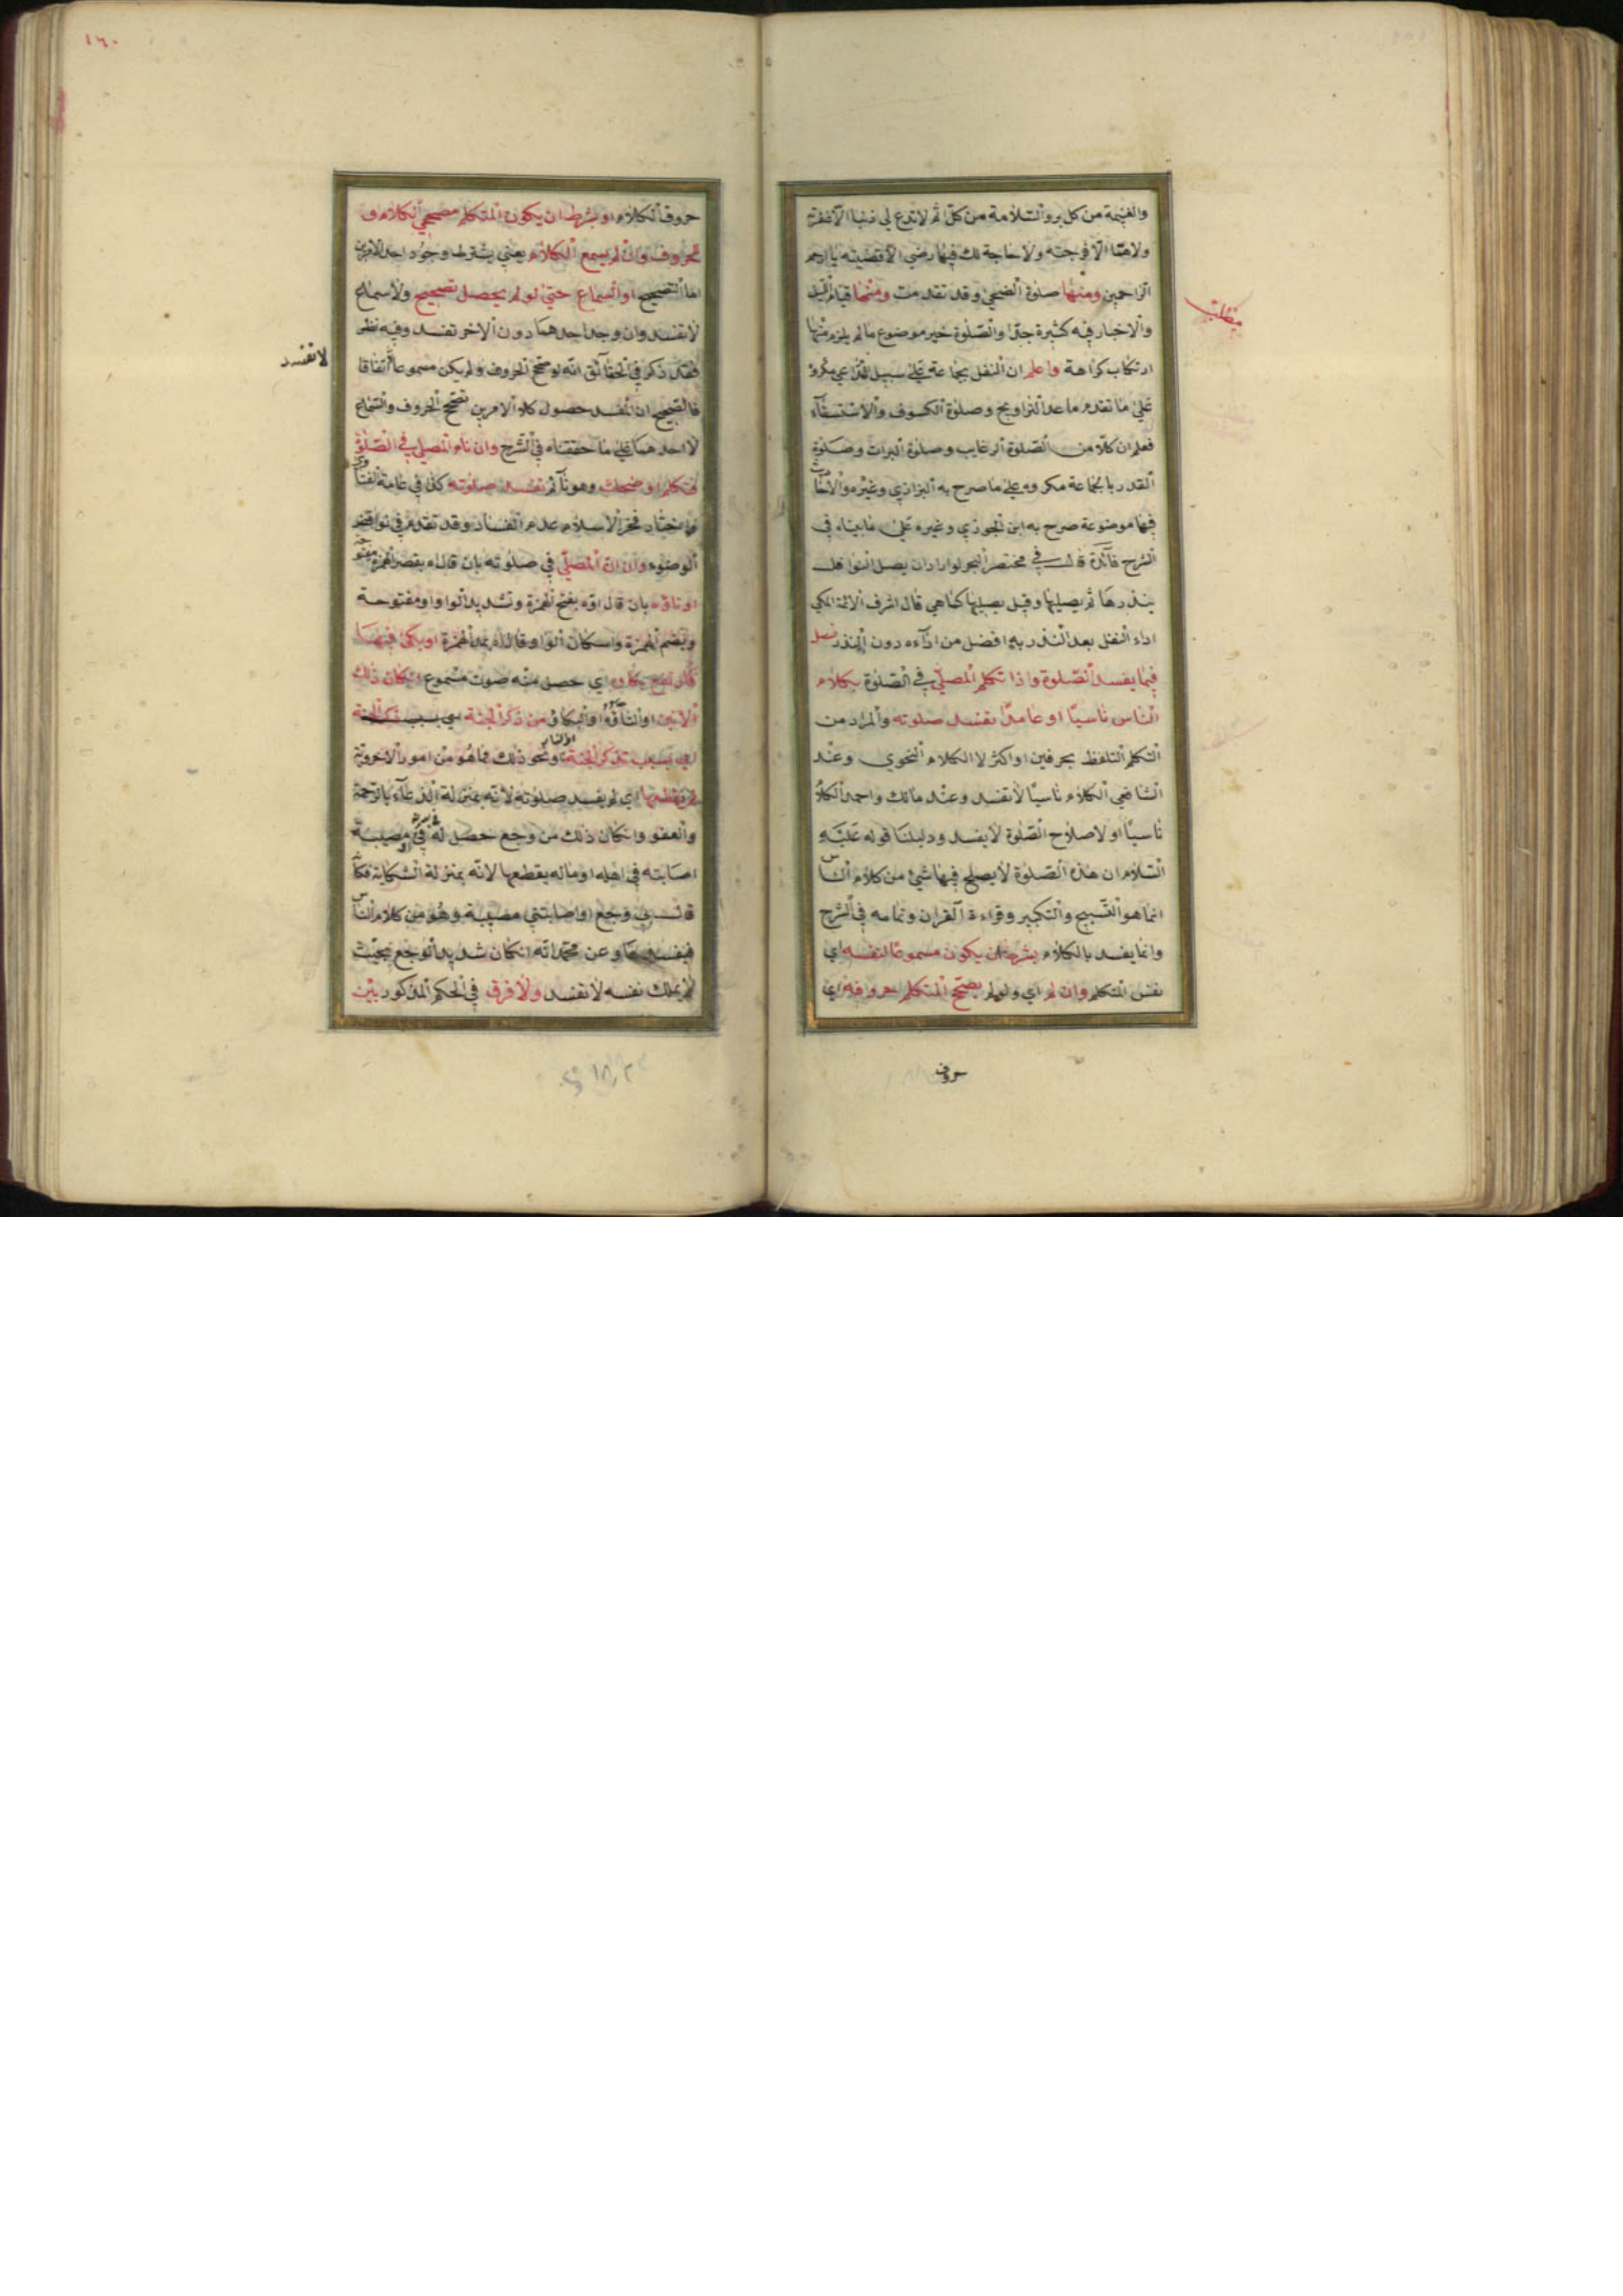 والغنيمة من كل بر والسلامة من كل اثم لا تدع لي ذنبا الا غفرته
ولا همّا الا فرجته ولا حاجة لك فيها رضي الا قضيتها يا ارحم
الراحمين ومنها صلوة الضحى وقد تقدمت ومنها قيام الليل
والاخبار فيه كثيرة جدّا والصلوة خير موضوع ما لم يلزم منها
ارتكاب كراهة واعلم ان النفل بجماعة على سبيل التداعي مكروه
على ما تقدم ما عدا التراويح وصلوة الكسوف والاستسقاء
فعلم ان كلّا من الصلوة الرغايب وصلوة البرات وصلوة
القدر بالجماعة مكروه على ما صرح به البزازي وغيره والاخبار
فيها موضوعة صرح به ابن الجوزي وغيره على ما بيناه في
الشرح فائدة قال في مختصر البحر لو اراد ان يصل النوافل
ينذرها ثم يصليها وقيل يصليها كما هي قال اشرف الائمة المكي
اداء النفل بعد النذر به افضل من اداءه دون النذر فصل
فيما يفسد الصلوة واذا تكلم المصلي في الصلوة بكلام
الناس ناسيًا او عامدًا تفسد صلوته والمراد من
التكلم التلفظ بحرفين او اكثر لا الكلام النحوي وعند
الشافعي الكلام ناسيًا لا تفسد وعند مالك واحمد الكلام
ناسيًا او لاصلاح الصلوة لا يفسد ودليلنا قوله عليه
السلام ان هذه الصلوة لا يصلح فيها شيئ من كلام الناس
انما هو التسبيح والتكبير وقراءة القران وتمامه في الشرح
وانما يفسد بالكلام بشرط ان يكون مسموعًا لنفسه اي
نفس المتكلم وان لم اي ولو لم يصحّح المتكلم حروفه اي
حروف
مطلب
١٦٠
حروف الكلام او بشرط ان يكون المتكلم مصحح الكلام و
الحروف وان لم يسمع الكلام يعني يشترط وجود احد الامرين
اما التصحيح او السماع حتى لو لم يحصل تصحيح ولا سماع
لا تفسد وان وجد احدهما دون الاخر تفسد وفيه نظر
فقد ذكر في الحقائق انه لو صحح الحروف ولم يكن مسموعا اتفاقا
لا تفسد
فالصحيح ان المفسد حصول كلا الامرين تصحيح الحروف والسماع
لا احدهما على ما حققناه في الشرح وان نام المصلي في الصلوة
فتكلم او ضحك وهو نائم تفسد صلوته كذا في عامة الفتاوى
واختيار فخر الاسلام عدم الفساد وقد تقدم في نواقض
الوضوء وان انّ المصلي في صلوته بان قال اه بقصر الهمزة مفتوحة
او تاوّه بان قال اوّه بفتح الهمزة وتشديد الواو مفتوحة
وبضم الهمزة واسكان الواو وقال اه بمد الهمزة او بكى فيها
فارتفع بكاؤه اي حصل منه صوت مسموع ان كان ذلك
الانين او التاوّه او البكاء من ذكر الجنة اي بسبب ذكر الجنة
اي بسبب تذكر الجنة او النار ونحو ذلك مما هو من امور الاخروية
لم يقطعها اي لم يفسد صلوته لانه بمنزلة الدعاء بالرحمة
والعفو وان كان ذلك من وجع حصل له في او مصيبة
اصابته في اهله او ماله يقطعها لانّه بمنزلة الشكاية فكانّه
قال بي وجع او اصابتني مصيبة وهو من كلام الناس
فيفسدها وعن محمد انه ان كان شديد الوجع بحيث
لا يملك نفسه لا تفسد ولا فرق في الحكم المذكور بين